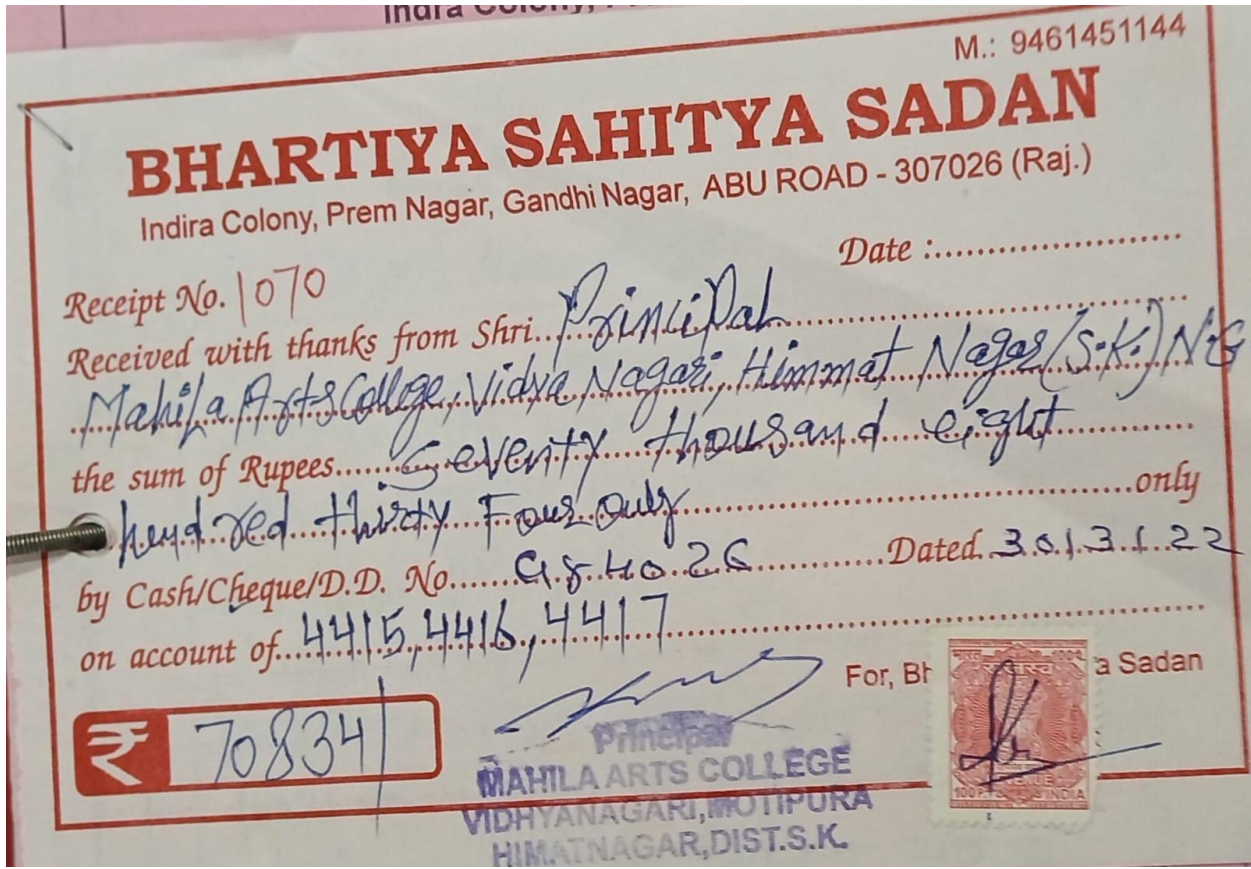 Indra Colony,
M.: 9461451144
BHARTIYA SAHITYA SADAN
Indira Colony, Prem Nagar, Gandhi Nagar, ABU ROAD - 307026 (Raj.)
Date :
Receipt No. 1070
Received with thanks from Shri Principal
Mahila Arts College, Vidya Nagari, Himmat Nagar (S.K.) N.G
the sum of Rupees Seventy thousand eight
hundred thirty Four only
only
by Cash/Cheque/D.D. No. 984026 Dated 30/3/22
on account of 4415, 4416, 4417
For, Bh a Sadan
₹ 70834/
Principal
MAHILA ARTS COLLEGE
VIDHYANAGARI, MOTIPURA
HIMATNAGAR, DIST.S.K.
भारत
INDIA